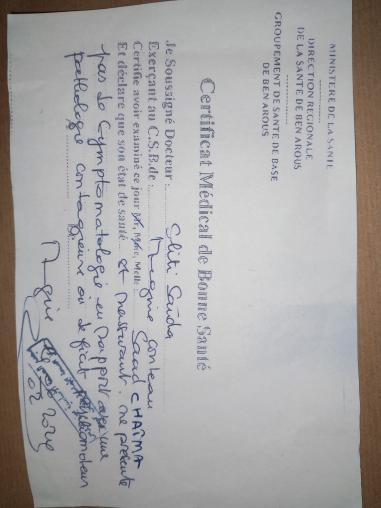 MINISTERE DE LA SANTE
DIRECTION REGIONALE
DE LA SANTE DE BEN AROUS
GROUPEMENT DE SANTE DE BASE
DE BEN AROUS
Certificat Médical de Bonne Santé
Je Soussigné Docteur : Sliti Saida
Exerçant au C.S.B.de : Megrine Coteau
Certifie avoir examiné ce jour Mr, Mme, Melle : Saad CHAIMA
Et déclare que son état de santé est rassurant, ne présente
pas de symptomatologie en rapport avec une
pathologie contagieuse ou déficit
Megrine